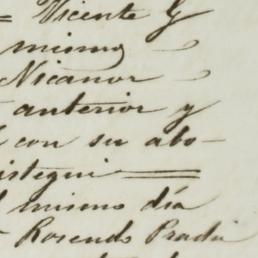 = Vicente G
mismo
Nicanor
anterior y
con su abo-
istegui
mismo día
Rosendo Prada